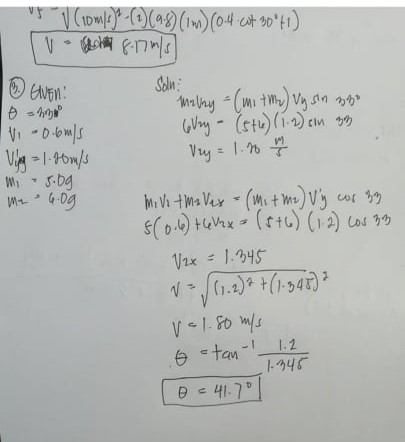 Vf = √(10m/s)² - (2)(9.8)(1m)(0.4 cot 30° + 1)
V = 8.17 m/s
③ GIVEN:
θ = 33°
V1 = 0.6 m/s
= 1.20 m/s
m1 = 5.0g
m2 = 6.0g
Soln:
m2V2y = (m1 + m2) Vy sin 33°
6V2y = (5+6)(1.2) sin 33
V2y = 1.20 m/s
m1V1 + m2V2x = (m1 + m2) V'y cos 33
5(0.6) + 6V2x = (5+6)(1.2) cos 33
V2x = 1.345
V = √(1.2)² + (1.345)²
V = 1.80 m/s
θ = tan⁻¹ 1.2/1.345
θ = 41.7°